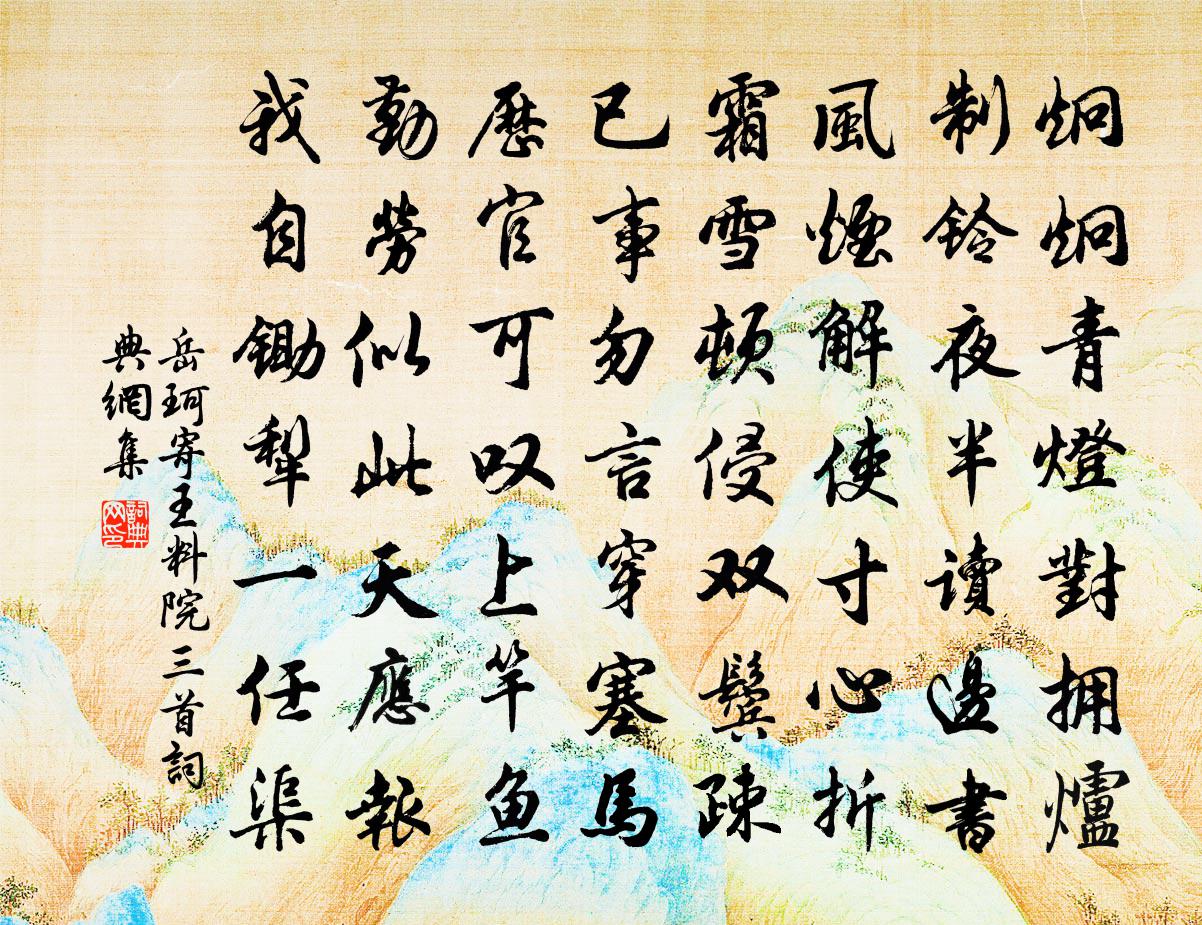 炯炯青燈對拥爐
制鈴夜半读邊書
風煙解使寸心折
霜雪頓侵双鬓疎
已事勿言穿塞馬
歷官可叹上竿鱼
勤勞似此天應報
我自鋤犁一任渠
岳珂寄王料院三首詞
典網集
詞典
网印